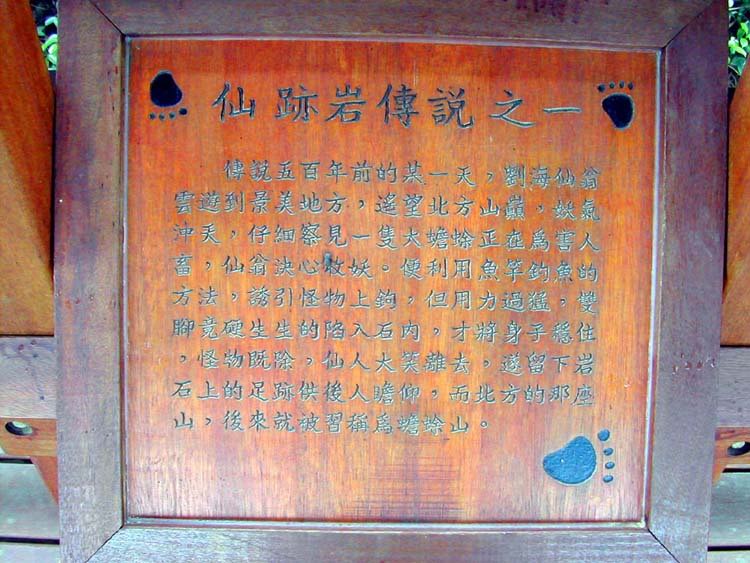 仙跡岩傳說之一
傳說五百年前的某一天，劉海仙翁
雲遊到景美地方，遙望北方山巔，妖氣
沖天，仔細察見一隻大蟾蜍正在為害人
畜，仙翁決心收妖。便利用魚竿釣魚的
方法，誘引怪物上鉤，但用力過猛，雙
腳竟硬生生的陷入石內，才將身子穩住
。怪物既除，仙人大笑離去，遂留下岩
石上的足跡供後人瞻仰，而北方的那座
山，後來就被習稱為蟾蜍山。